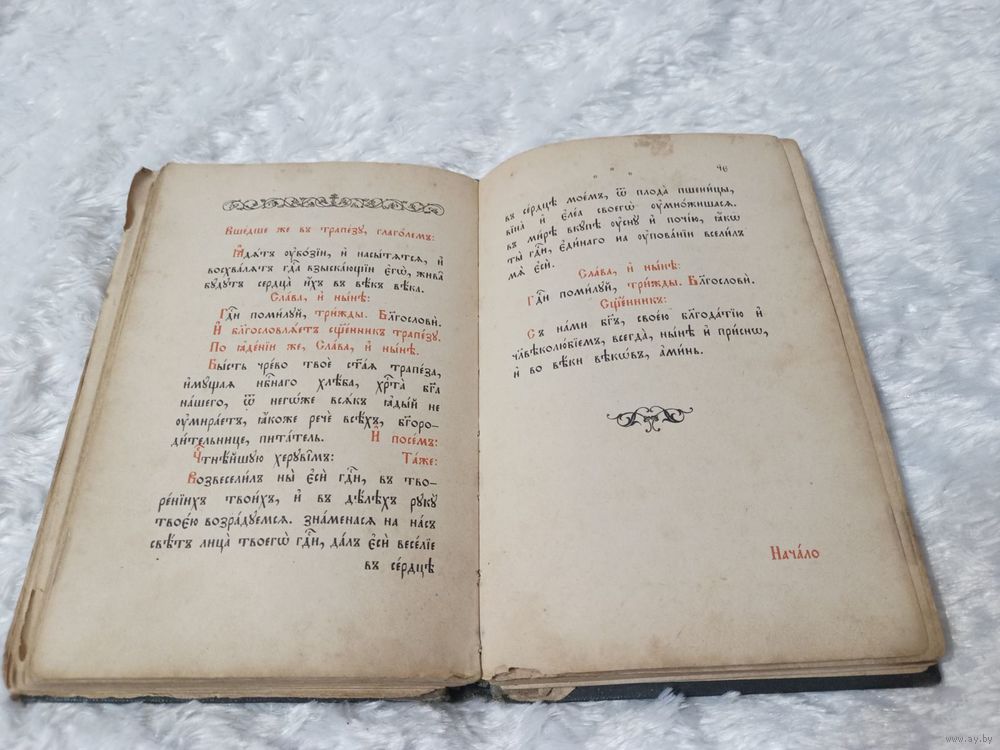 Вше́дше же въ трапе́зу, глаго́лемъ:
Ꙗ҆дѧ́тъ ᲂу҆бо́зїи, и҆ насы́тѧтсѧ, и҆
восхва́лѧтъ гдⷭ҇а взыска́ющїи є҆го̀, жива̑
бу́дутъ сердца̀ и҆́хъ въ вѣ́къ вѣ́ка.
Сла́ва, и҆ ны́нѣ:
Гдⷭ҇и поми́луй, три́жды. Блгⷭ҇ословѝ.
И҆ блгⷭ҇ословлѧ́етъ сщ҃е́нникъ трапе́зу.
По ꙗ҆де́нїи же, Сла́ва, и҆ ны́нѣ.
Бы́сть чре́во твоѐ ст҃а́ѧ трапе́за,
и҆му́щаѧ нбⷭ҇наго хлѣ́ба, хрⷭ҇та̀ бг҃а
на́шего, ѿ негѡ́же всѧ́къ ꙗ҆ды́й не
ᲂу҆мира́етъ, ꙗ҆́коже речѐ всѣ́хъ, бг҃оро-
ди́тельнице, пита́тель. И҆ посе́мъ:
Чⷭ҇тнѣ́йшую херуві̑мъ: Та́же:
Возвесели́лъ ны̀ є҆сѝ гдⷭ҇и, въ тво-
ре́нїихъ твои́хъ, и҆ въ дѣ́лѣхъ рукꙋ̀
твоє́ю возра́дуемсѧ. зна́менасѧ на на́съ
свѣ́тъ лица̀ твоегѡ̀ гдⷭ҇и, да́лъ є҆сѝ весе́лїе
въ се́рдцѣ
че
въ се́рдцѣ мое́мъ, ѿ плода̀ пшени́цы,
вїна̀ и҆ є҆ле́а своегѡ̀ ᲂу҆мно́жишасѧ.
въ ми́рѣ вку́пѣ ᲂу҆сну̀ и҆ почі́ю, ꙗ҆́кѡ
ты̀ гдⷭ҇и, є҆ди́наго на ᲂу҆пова́нїи всели́лъ
мѧ̀ є҆сѝ.
Сла́ва, и҆ ны́нѣ:
Гдⷭ҇и поми́луй, три́жды. Блгⷭ҇ословѝ.
Сщ҃е́нникъ:
Съ на́ми бг҃ъ, свое́ю благода́тїю и҆
чл҃вѣколю́бїемъ, всегда̀, ны́нѣ и҆ при́снѡ,
и҆ во вѣ́ки вѣкѡ́въ, а҆ми́нь.
Нача́ло
www.ay.by